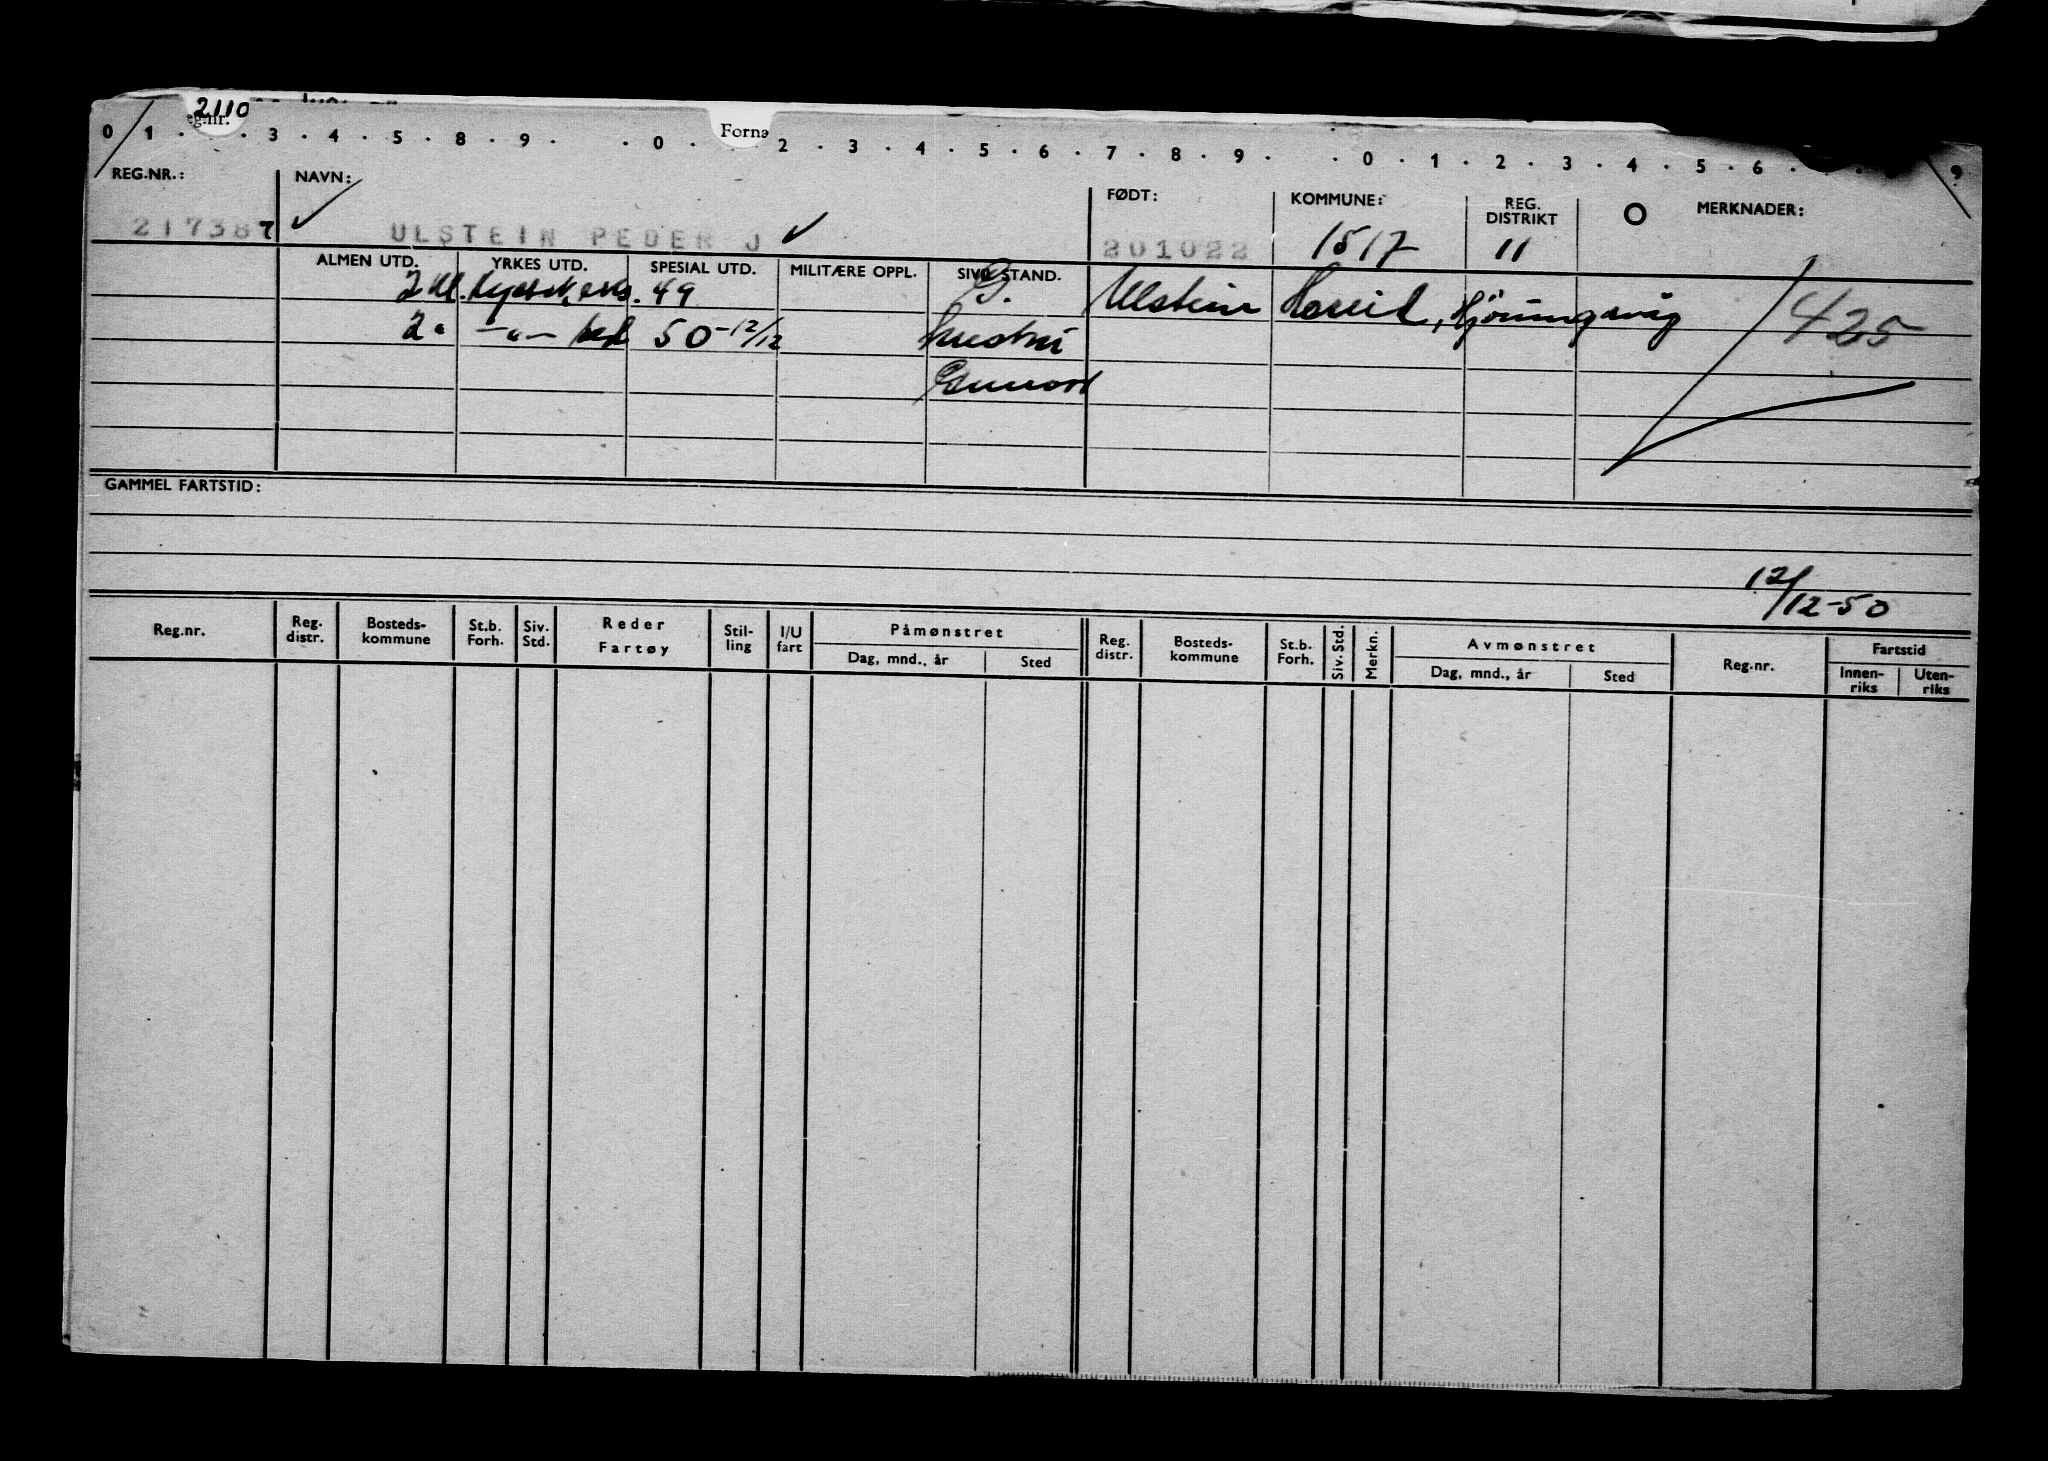 2110
eg.nr.
Forna
0 1 . . 3 . 4 . 5 . 8 . 9 . . 0 . 2 . 3 . 4 . 5 . 6 . 7 . 8 . 9 . . 0 . 1 . 2 . 3 . 4 . 5 . 6 . 9
REG.NR.: NAVN: FØDT: KOMMUNE: REG. DISTRIKT O MERKNADER:
217387 ULSTEIN PEDER J 201022 1517 11
ALMEN UTD. YRKES UTD. SPESIAL UTD. MILITÆRE OPPL. SIVIL STAND.
2 kl. 49 G. Ulstein Hareid, 425
2 " -"- 50-12/12
GAMMEL FARTSTID:
12/12-50
Reg.nr. Reg. distr. Bosteds- kommune St.b. Forh. Siv. Std. Reder Fartøy Stil- ling I/U fart Påmønstret Dag, mnd., år Sted Reg. distr. Bosteds- kommune St.b. Forh. Siv. Std. Merkn. Avmønstret Dag, mnd., år Sted Reg.nr. Fartstid Innen- riks Uten- riks